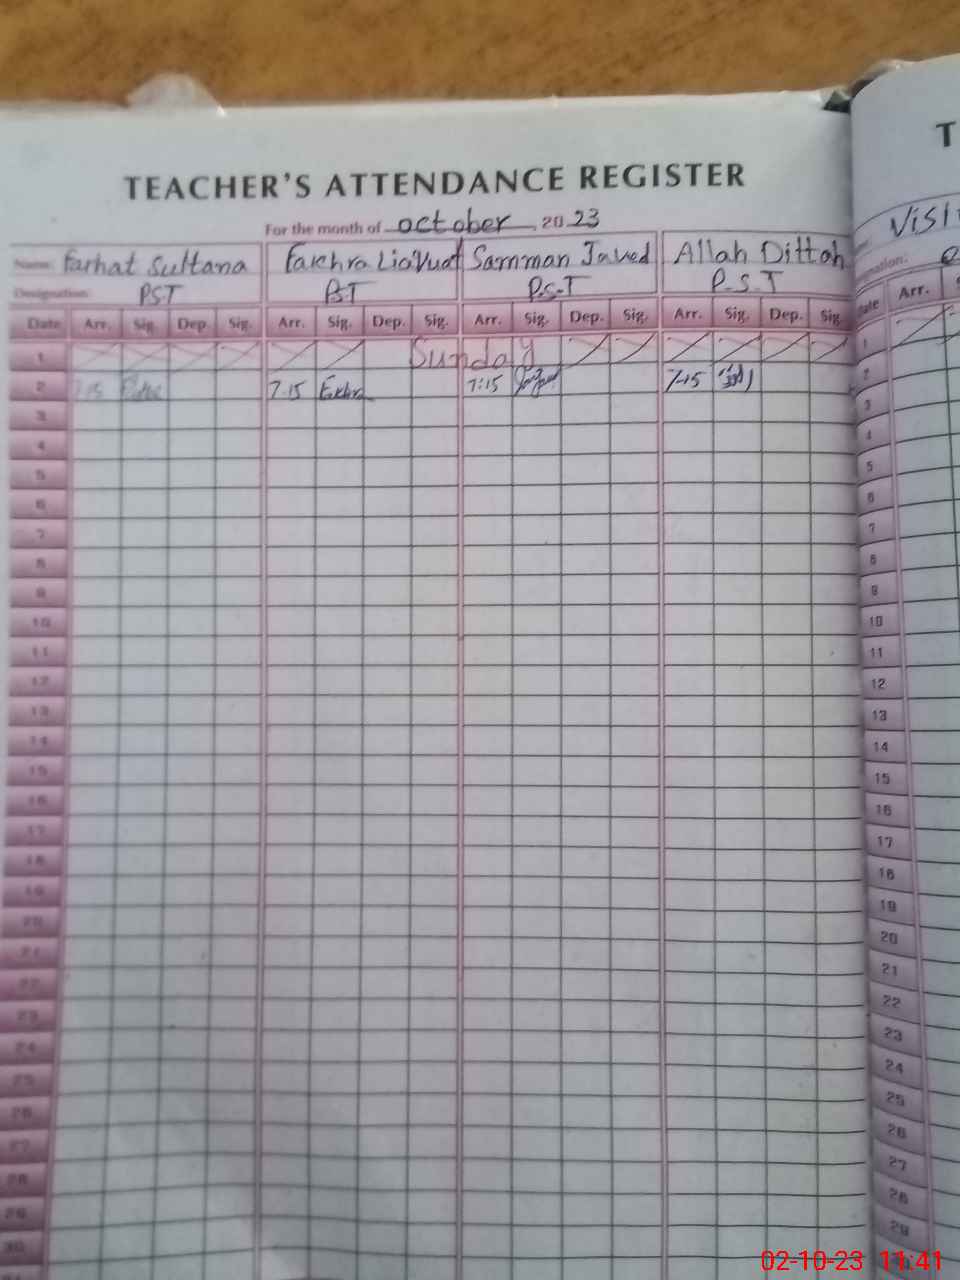 TEACHER'S ATTENDANCE REGISTER
For the month of october, 2023
Name: Farhat Sultana Liaquat Samman Javed Allah Dittah
Designation: PST PST P.S.T P.S.T
Date Arr. Sig. Dep. Sig. Arr. Sig. Dep. Sig. Arr. Sig. Dep. Sig. Arr. Sig. Dep. Sig.
1 Sunday
2 7:15 7.15 7:15 7:15
3
4
5
6
7
8
9
10
11
12
13
14
15
16
17
18
19
20
21
22
23
24
25
26
27
28
29
30
T
Date Arr.
1
2
3
4
5
6
7
8
9
10
11
12
13
14
15
16
17
18
19
20
21
22
23
24
25
26
27
28
29
02-10-23 11:41